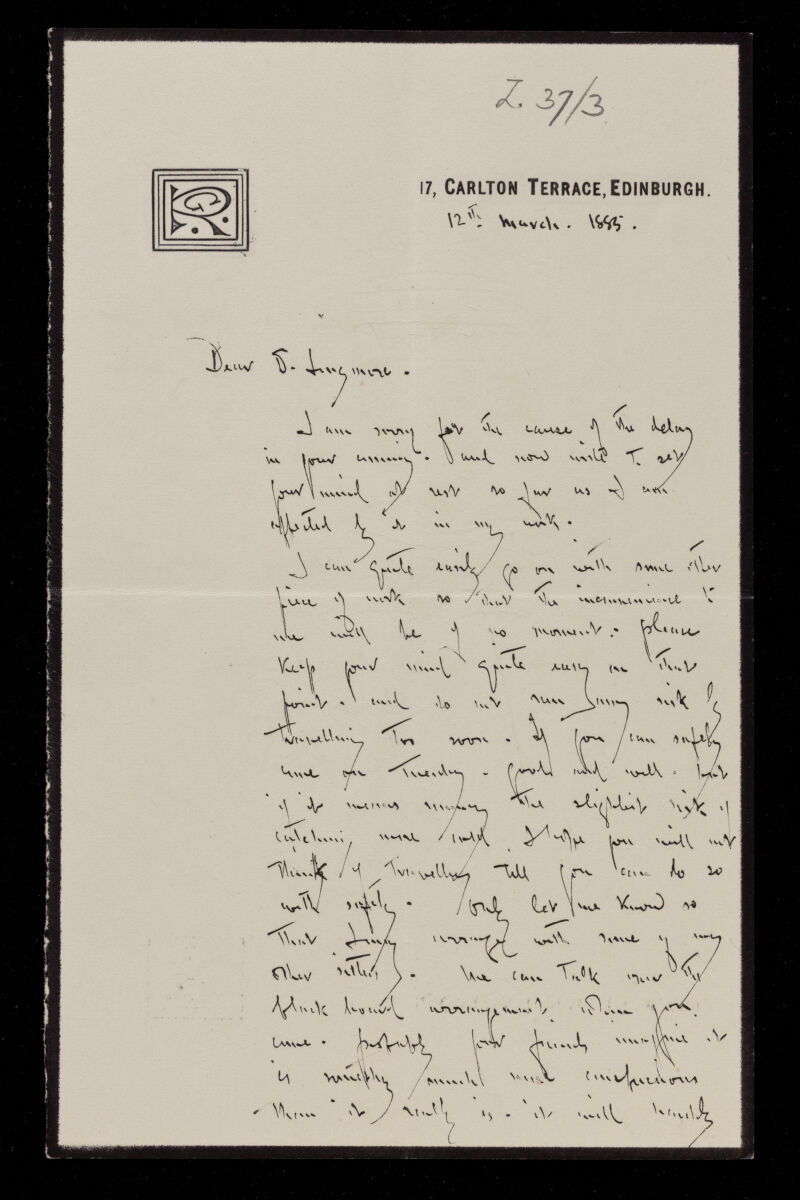 Z. 37/3
17, CARLTON TERRACE, EDINBURGH.
12th March. 1885.
Dear D. Lingmore.
I am sorry for the cause of the delay
in your coming. and now write to set
your mind at rest so far as I am
affected by it in my work.
I can quite easily go on with some other
piece of work so that the inconvenience to
me will be of no moment. Please
keep your mind quite easy on that
point. and do not run any risk by
travelling too soon. If you can safely
come on Tuesday. good and well. but
if it means running the slightest risk of
catching more cold. I hope you will not
think of travelling till you can do so
with safety. Only let me know so
that I may arrange with some of my
other sitters. We can talk over the
black board arrangement when you
come. probably your friends imagine it
is something much more conspicuous
than it really is. it will hardly